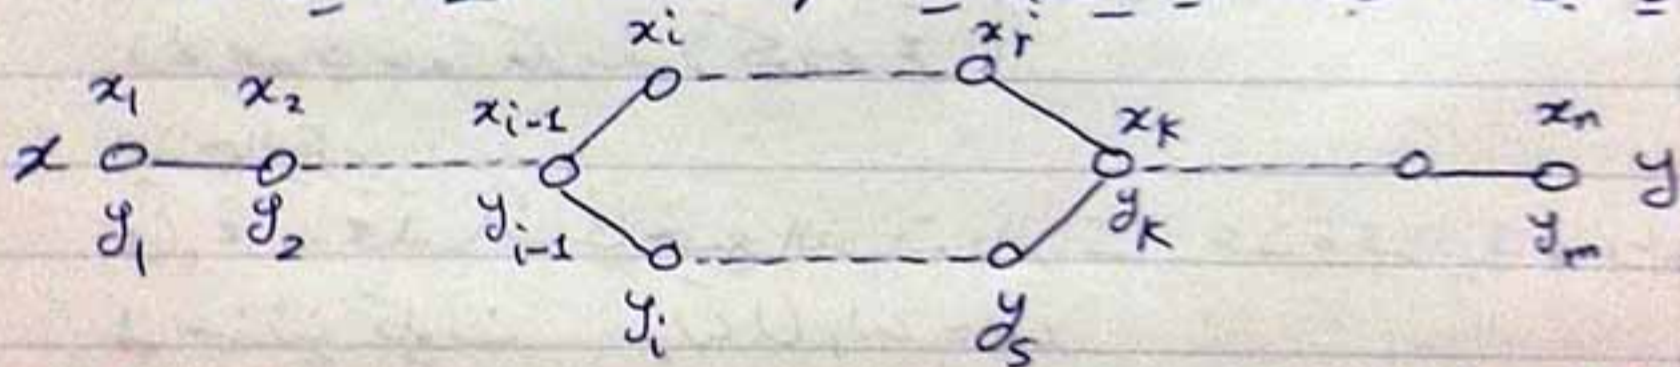 x_i x_r
x_1 x_2 x_{i-1} x_k x_n
x y
y_1 y_2 y_{i-1} y_k y_m
y_i y_s